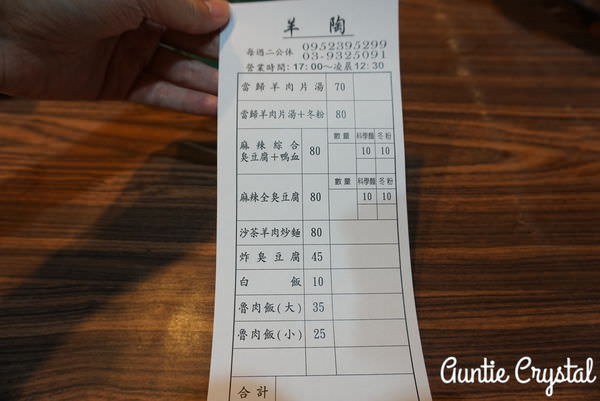 羊 陶
每週二公休 0952395299
03-9325091
營業時間：17：00～凌晨12：30
當歸羊肉片湯 70
當歸羊肉片湯+冬粉 80
麻辣綜合 數量 科學麵 冬粉
臭豆腐+鴨血 80 10 10
數量 科學麵 冬粉
麻辣全臭豆腐 80 10 10
沙茶羊肉炒麵 80
炸臭豆腐 45
白飯 10
魯肉飯(大) 35
魯肉飯(小) 25
合計
Auntie Crystal